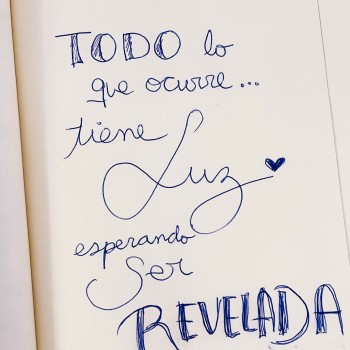 TODO lo
que ocurre...
tiene
Luz
esperando
Ser
REVELADA